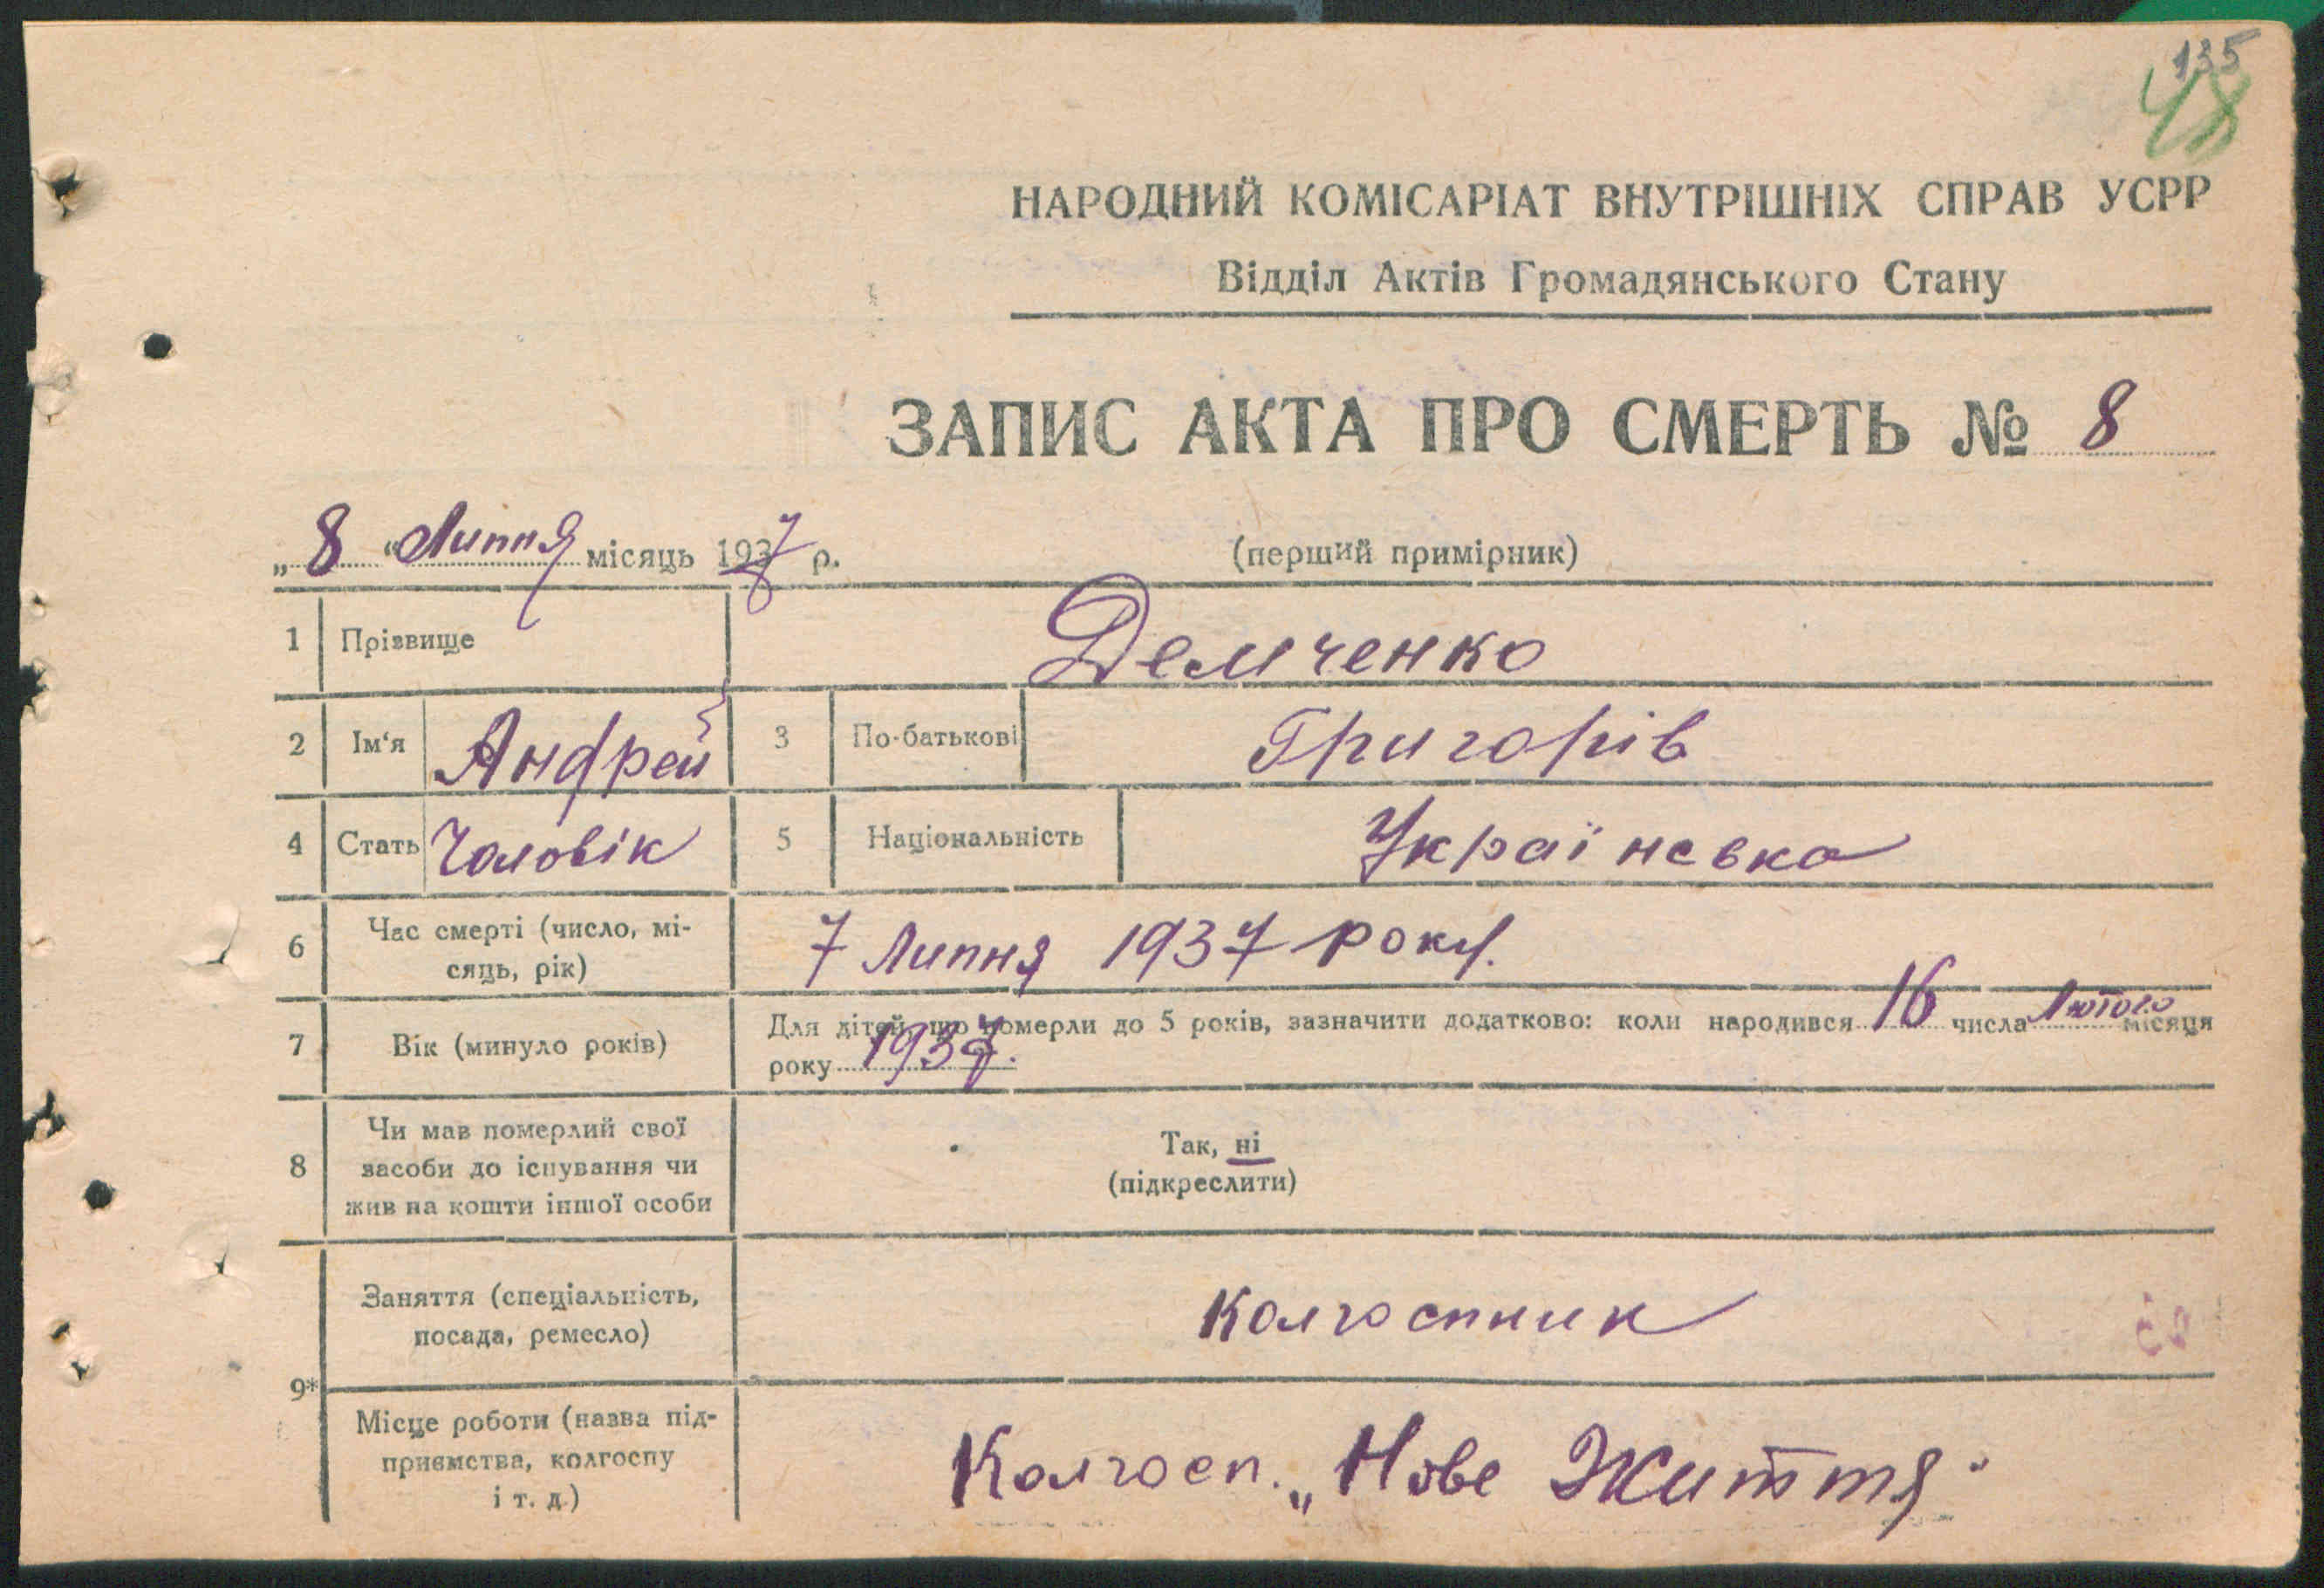 135
48
НАРОДНИЙ КОМІСАРІАТ ВНУТРІШНІХ СПРАВ УСРР
Відділ Актів Громадянського Стану
ЗАПИС АКТА ПРО СМЕРТЬ № 8
„8“ Липня місяць 1937 р. (перший примірник)
1 Прізвище Демченко
2 Ім‘я Андрей 3 По-батькові Григорів
4 Стать Чоловік 5 Національність Українська
6 Час смерті (число, мі-
сяць, рік) 7 Липня 1937 року.
7 Вік (минуло років) Для дітей, що померли до 5 років, зазначити додатково: коли народився 16 числа Лютого місяця
року 1937.
8 Чи мав померлий свої
засоби до існування чи
жив на кошти іншої особи
Так, ні
(підкреслити)
9* Заняття (спеціальність,
посада, ремесло) Колгоспник
Місце роботи (назва під-
приємства, колгоспу
і т. д.) Колгосп. „Нове Життя"